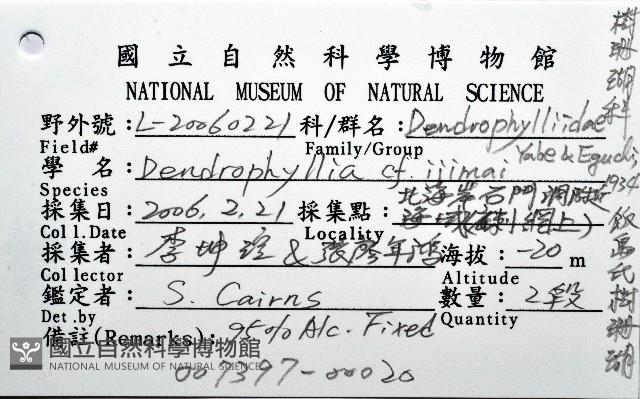 國立自然科學博物館
NATIONAL MUSEUM OF NATURAL SCIENCE
野外號: L-20060221 科/群名: Dendrophylliidae
Field# Family/Group
學名: Dendrophyllia cf. ijimai Yabe & Eguchi, 1934
Species
採集日: 2006. 2. 21 採集點: 北海岸石門洞附近
海域(刺網上)
Coll.Date Locality
採集者: 李坤瑄 & 張廖年鴻 海拔: -20 m
Collector Altitude
鑑定者: S. Cairns 數量: 2段
Det.by Quantity
備註(Remarks): 95% Alc. Fixed
007397-00020
樹珊瑚科
飯島氏樹珊瑚
國立自然科學博物館
NATIONAL MUSEUM OF NATURAL SCIENCE